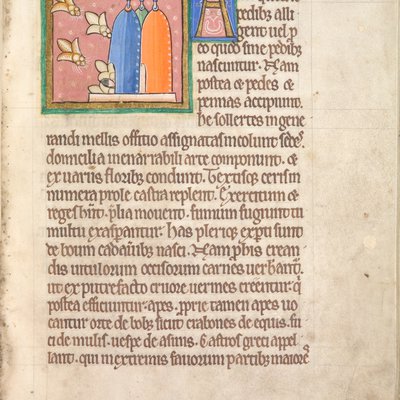 pedibꝫ alli
gent uel p
eo quod sine pedibꝫ
nascuntur. Nam
postea ⁊ pedes ⁊
pennas accipiunt.
he sollertes in gene
randi mellis offitio assignatas incolunt sedes.
domicilia inenarrabili arte componunt. ⁊
ex uariis floribꝫ condunt. Textisqꝫ ceris in
numera prole castra replent. Exercitum ⁊
reges hn̄t. p̄lia mouent. fumum fugiunt tu
multu exasperantur. has pleriqꝫ experti sunt
de boum cadaueribꝫ nasci. Nam p his crean
dis uitulorum occisorum carnes uerberant᷑.
ut ex putrefacto cruore uermes creentur. q̄
postea efficiuntur apes. Proprie tamen apes uo
cantur orte de bobꝫ sicut crabones de equis. fu
ci de mulis. uespe de asinis. Castros greci appel
lant. qui in extremis fauorum partibꝫ maiores